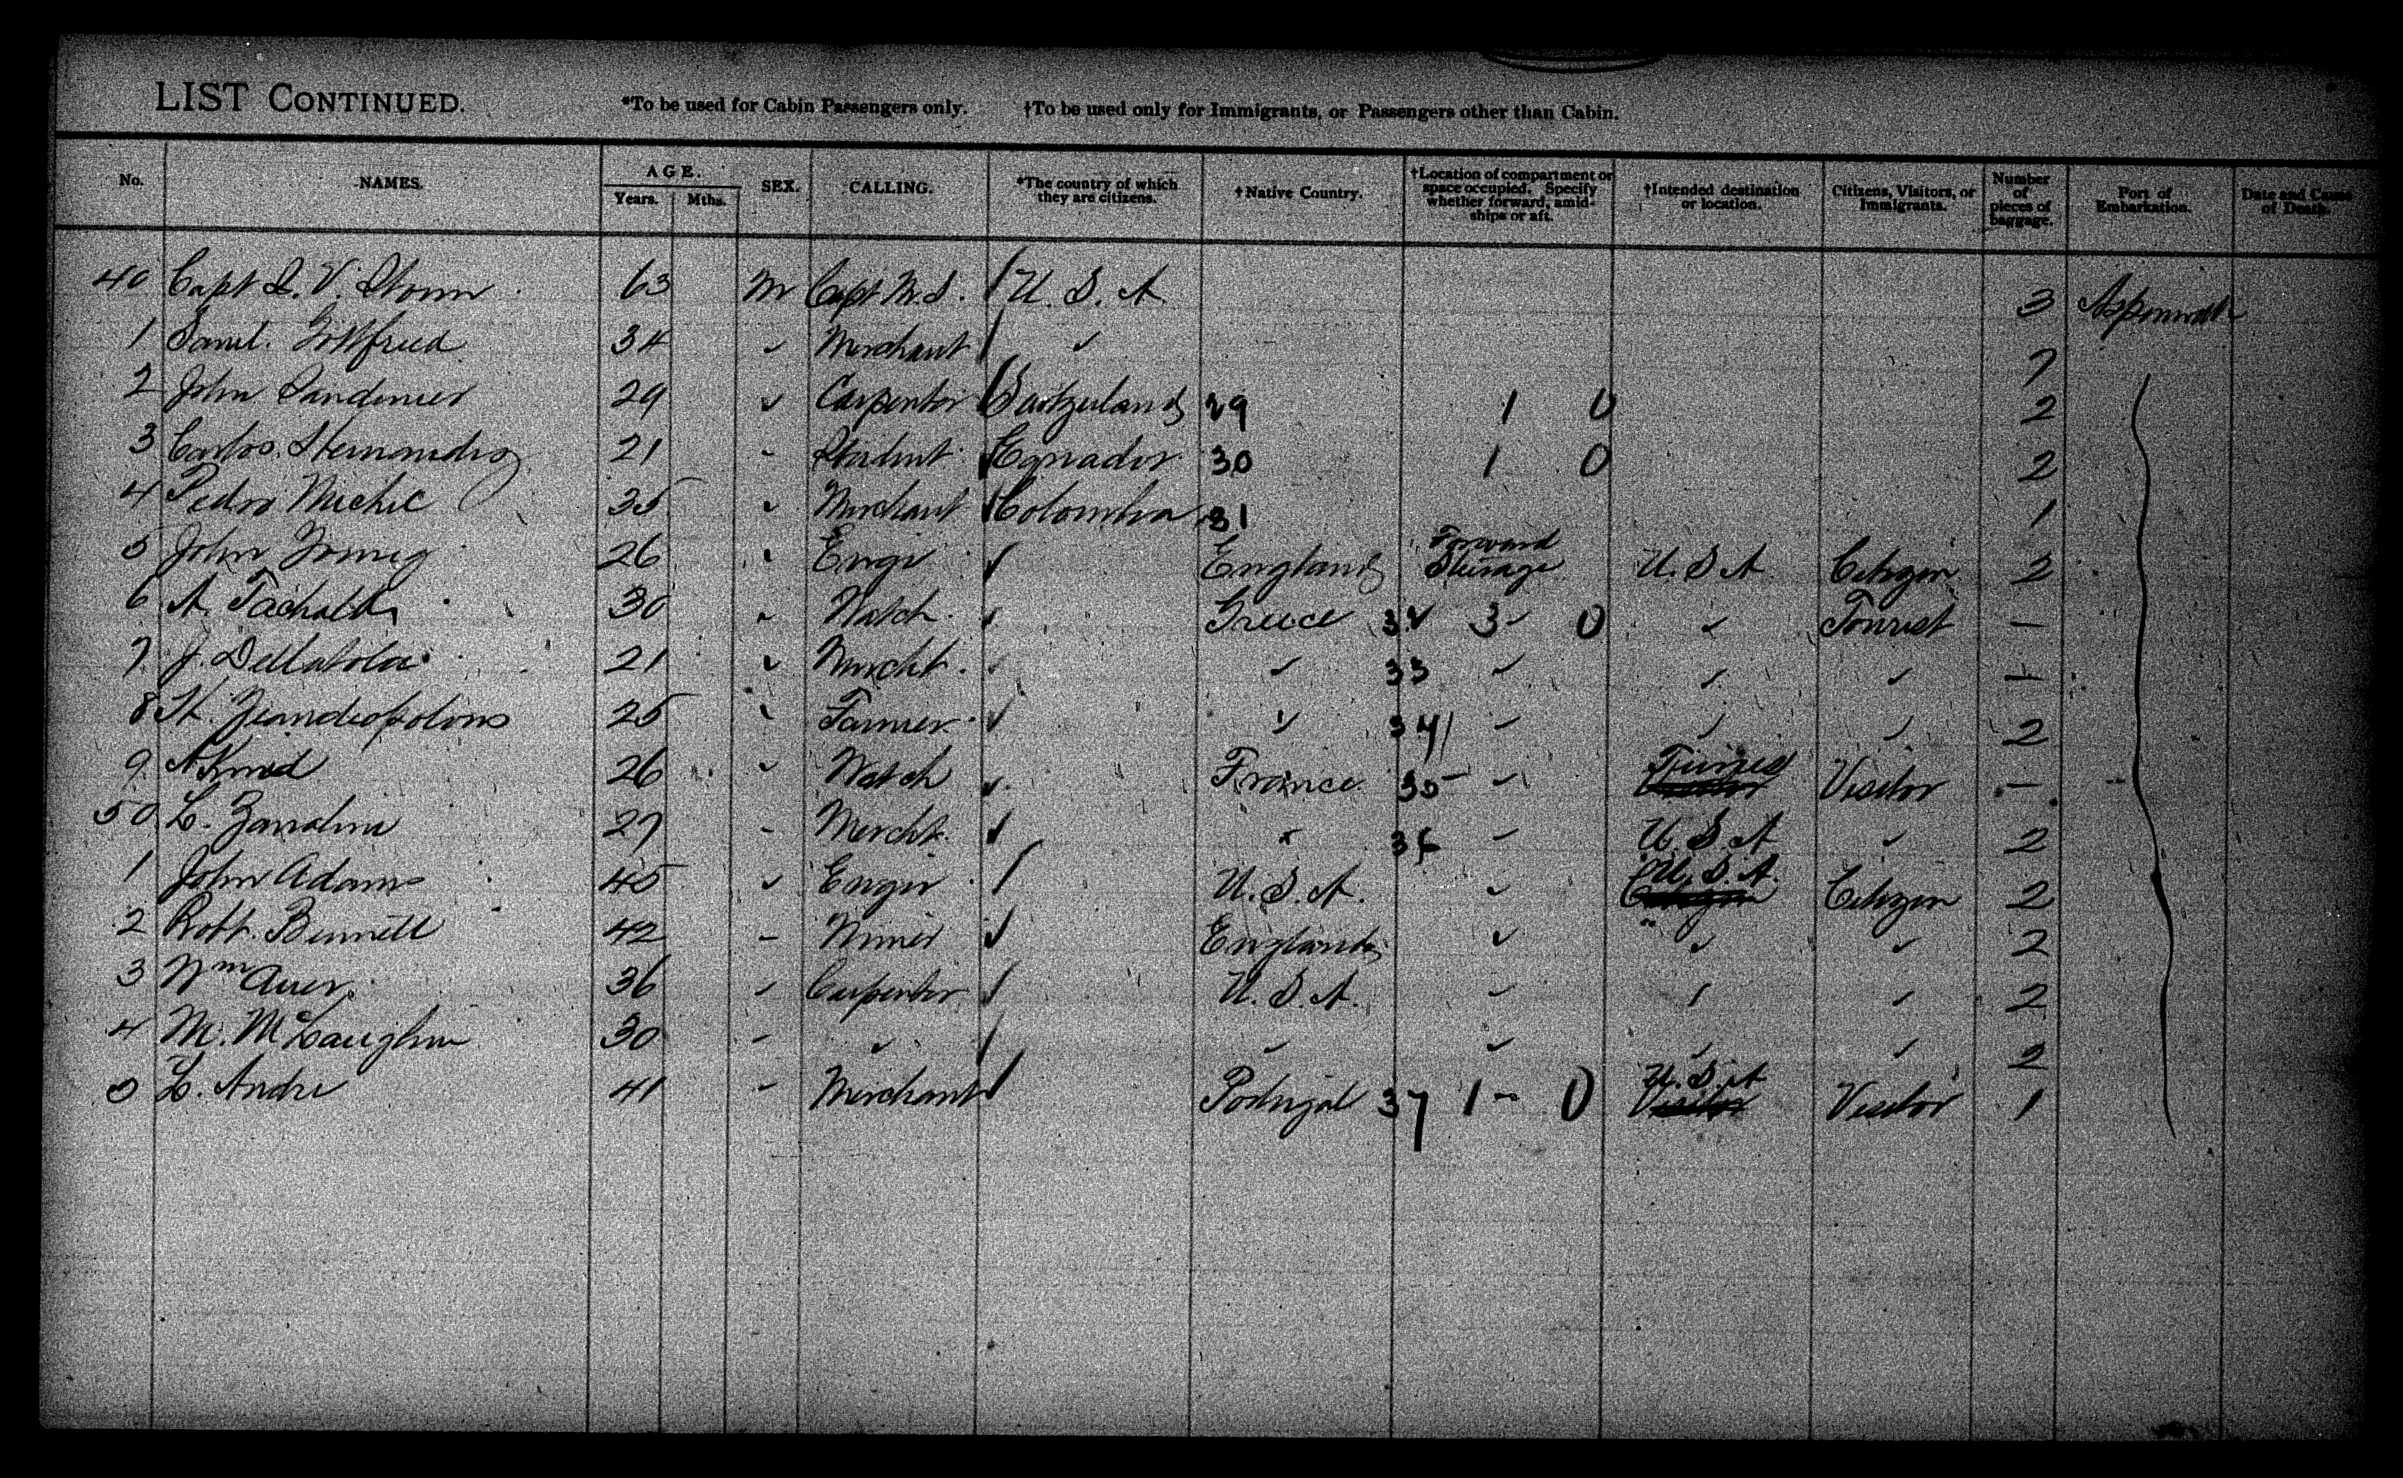 LIST CONTINUED. *To be used for Cabin Passengers only. †To be used only for Immigrants, or Passengers other than Cabin.
No. NAMES. AGE. Years. Mths. SEX. CALLING. *The country of which they are citizens. †Native Country. †Location of compartment or space occupied. Specify whether forward, amidships or aft. †Intended destination or location. Citizens, Visitors, or Immigrants. Number of pieces of baggage. Port of Embarkation. Date and Cause of Death.
40 Capt 63 M Capt U. S. A 3 Aspinwall
1 Saml. Gottfried 34 ✓ Merchant ✓ 7
2 John 29 ✓ Carpenter Switzerland 29 1 0 2
3 Carlos Hernandez 21 Student Equador 30 1 0 2
4 Pedro Michic 35 ✓ Merchant Colombia 31 1
5 John Young 26 Engr ✓ England Forward Steerage U. S A Citizen 2
6 A. 30 Watch ✓ Greece 32 3 0 ✓ Tourist —
7 J. Dellatola 21 ✓ Mercht. ✓ ✓ 33 ✓ ✓ ✓ —
8 25 Farmer ✓ ✓ 34 ✓ ✓ ✓ 2
9 26 ✓ Watch ✓ France 35 ✓ Visitor —
50 L. 27 Mercht. ✓ " 36 ✓ U. S A ✓ 2
1 John Adams 45 ✓ Engr U. S. A. ✓ U. S. A. Citizen 2
2 Robt. Bennett 42 Miner ✓ England ✓ ✓ ✓ 2
3 Wm Auer 36 Carpenter U. S. A. ✓ ✓ 2
4 M. McLaughlin 30 ✓ ✓ ✓ ✓ ✓ 2
5 L. Andre 41 Merchant Portugal 37 1 0 U. S. A Visitor Visitor 1